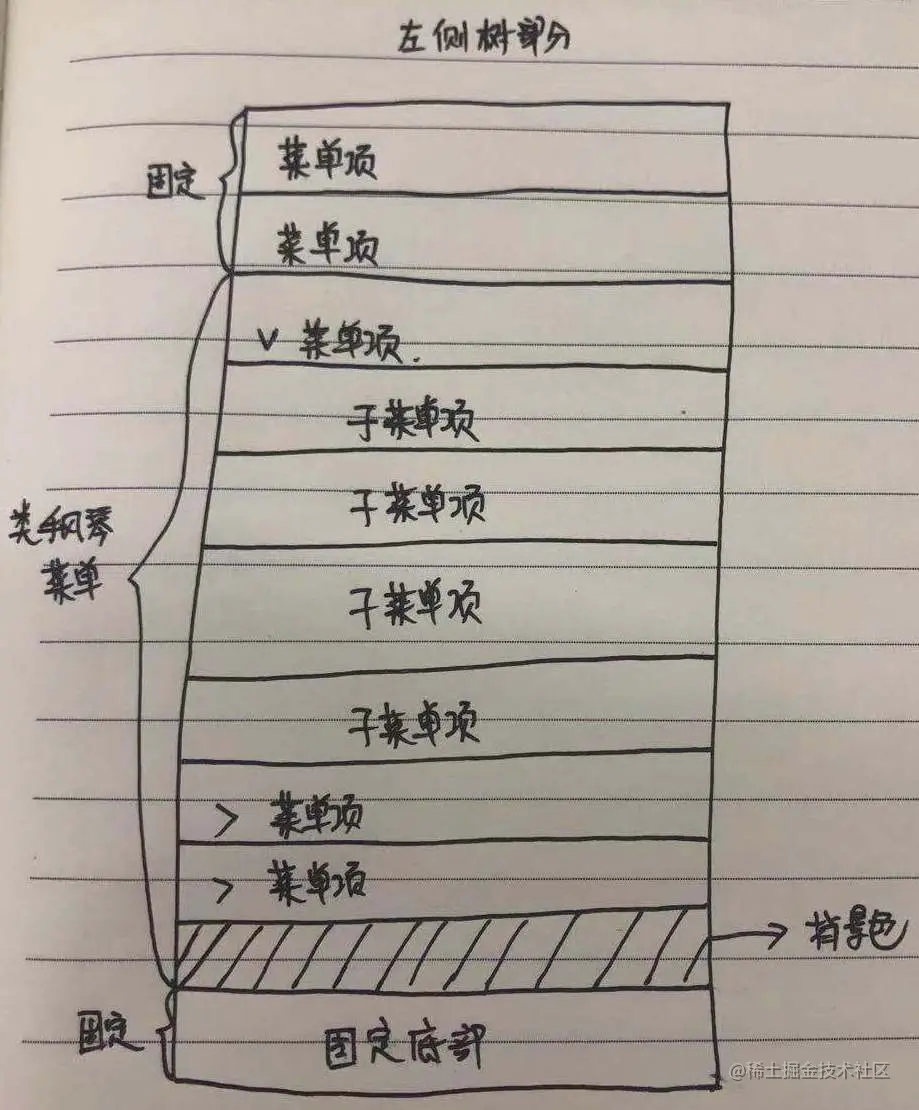 左侧树部分
固定
菜单项
菜单项
∨ 菜单项.
子菜单项
子菜单项
类手风琴
菜单
子菜单项
子菜单项
> 菜单项
> 菜单项
背景色
固定
固定底部
@稀土掘金技术社区